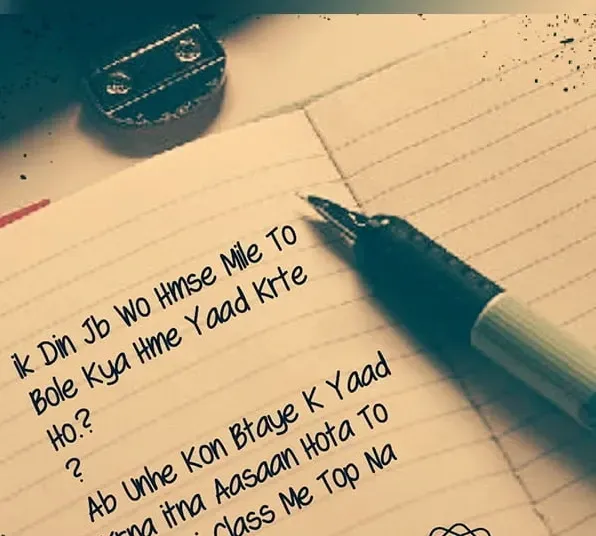 ik Din Jb Wo Hmse Mile To
Bole Kya Hme Yaad Krte
Ho.?
?
Ab Unhe Kon Btaye K Yaad
itna Aasaan Hota To
Class Me Top Na